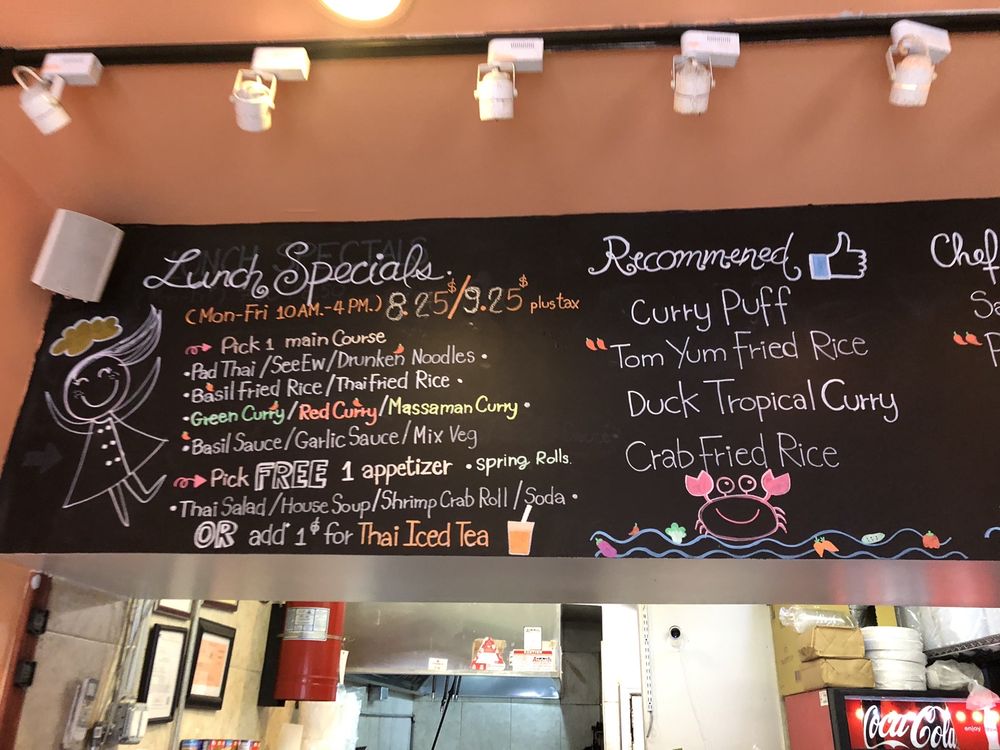 Lunch Specials.
(Mon-Fri 10AM.-4PM.) 8.25$/9.25$ plus tax
Pick 1 main Course
•Pad Thai/SeeEw/Drunken Noodles•
•Basil Fried Rice/Thai Fried Rice•
•Green Curry/Red Curry/Massaman Curry•
•Basil Sauce/Garlic Sauce/Mix Veg
Pick FREE 1 appetizer •spring Rolls.
•Thai Salad/House Soup/Shrimp Crab Roll/Soda•
OR add 1$ for Thai Iced Tea
Recommened
Curry Puff
Tom Yum Fried Rice
Duck Tropical Curry
Crab Fried Rice
Chef
Coca-Cola
enjoy